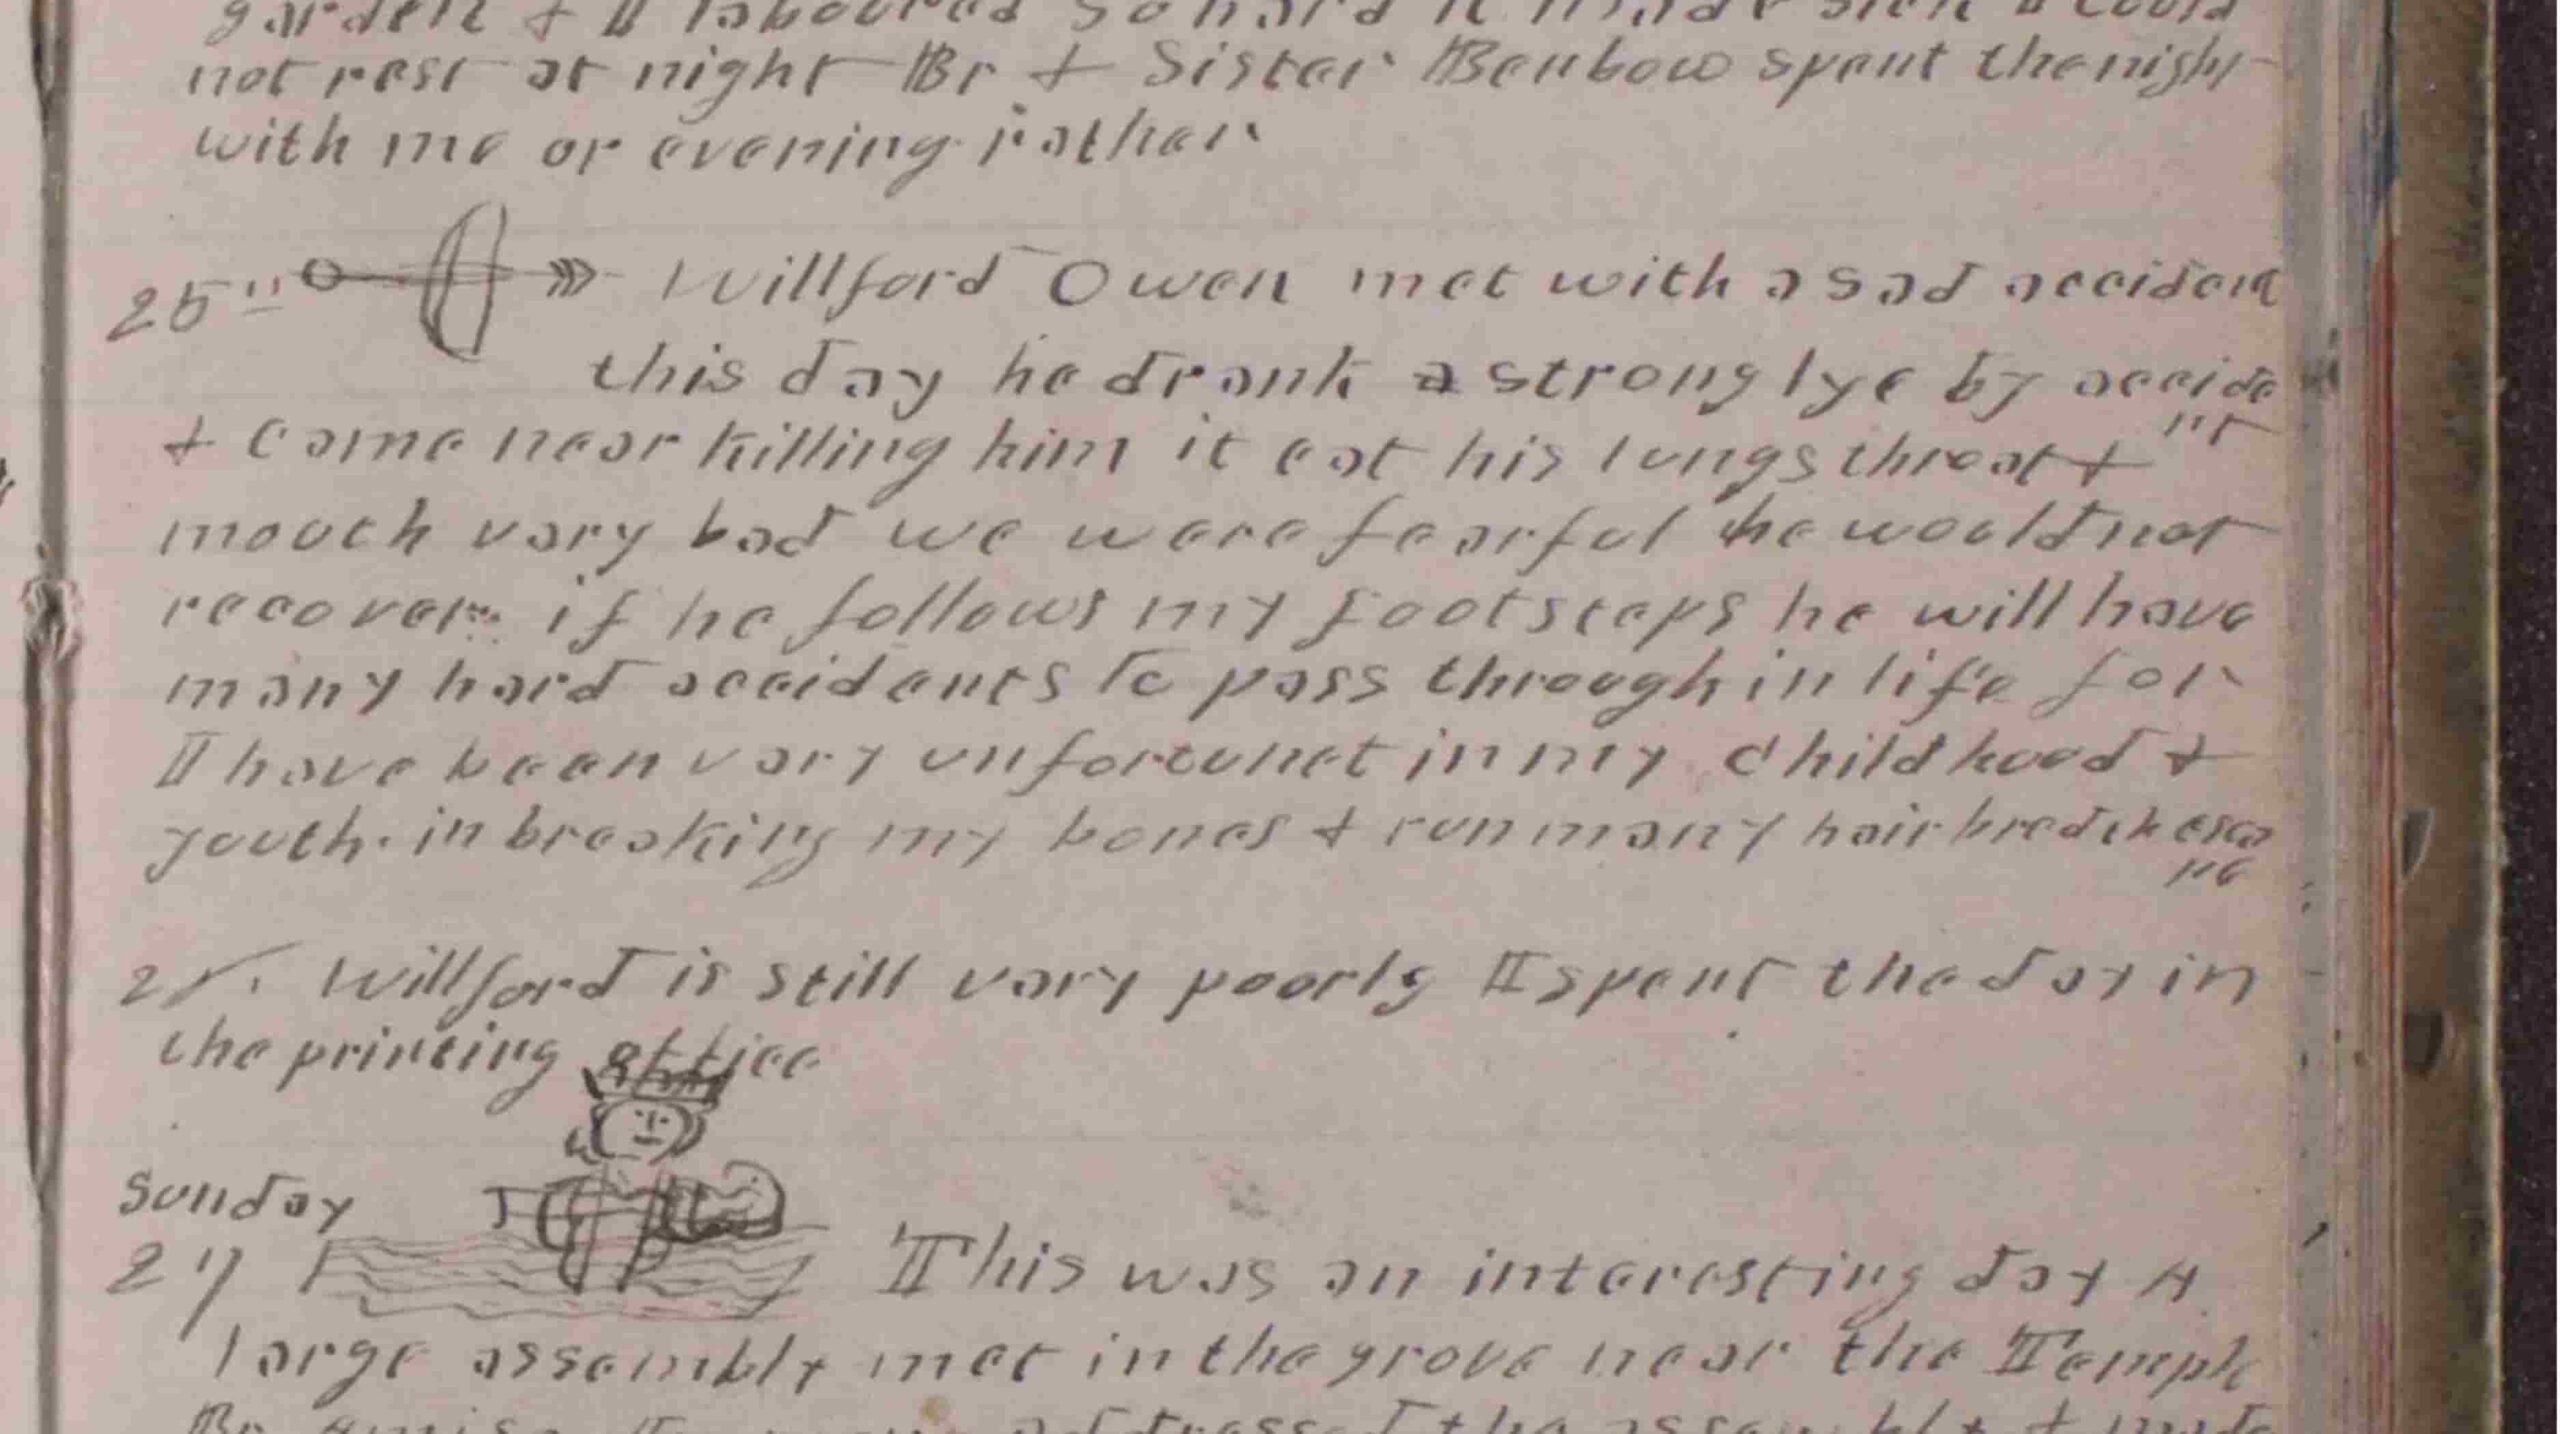 garden & I laboured so hard it made sick I could
not rest at night Br & Sister Benbow spent the night
with me or evening rather
25" Willford Owen met with a sad accident
this day he drank a strong lye by accide
nt
& came near killing him it eat his lungs throat &
mouth vary bad we were fearful he would not
recover. if he follows my footsteps he will have
many hard accidents to pass through in life for
I have been vary unfortunet in my childhood &
youth. in breaking my bones & run many hair bredth esca
pes
26. Willford is still vary poorly I spent the day in
the printing office
Sunday
27 This was an interesting day A
large assembly met in the grove near the Temple
Br addressed the assembly & made